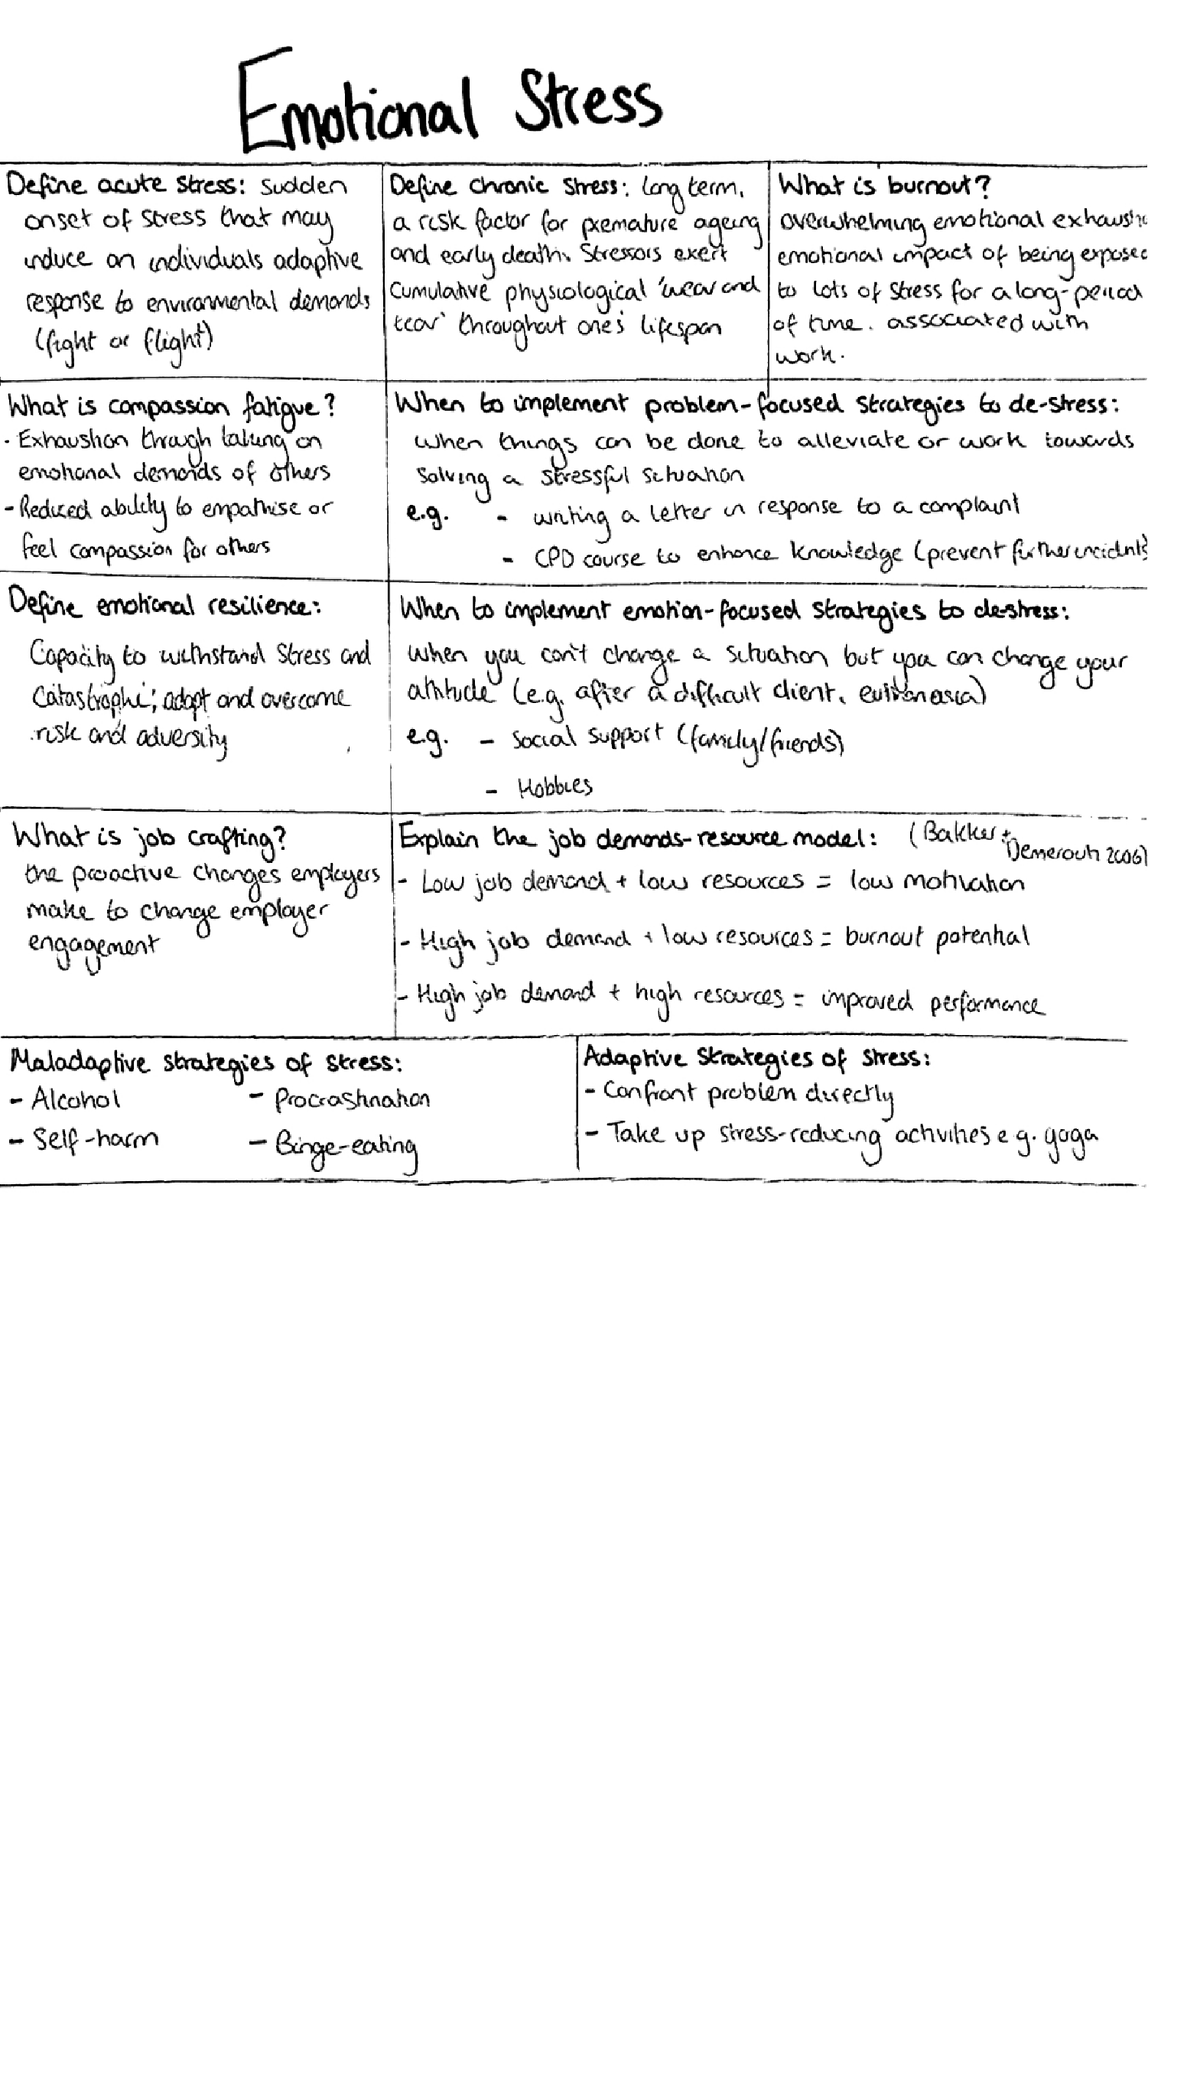 Emotional Stress
Define acute stress: sudden
onset of stress that may
induce an individuals adaptive
response to environmental demands
(fight or flight)
Define chronic stress: long term,
a risk factor for premature ageing
and early death. Stressors exert
cumulative physiological 'wear and
tear' throughout one's lifespan
What is burnout?
overwhelming emotional
emotional impact of being
to lots of stress for a long-period
of time. associated with
work.
What is compassion fatigue?
- Exhaustion through taking on
emotional demands of others
- Reduced ability to empathise or
feel compassion for others
When to implement problem-focused strategies to de-stress:
when things can be done to alleviate or work towards
solving a stressful situation
e.g. - writing a letter in response to a complaint
- CPD course to enhance knowledge (prevent further incidents)
Define emotional resilience:
Capacity to withstand stress and
; adapt and overcome
risk and adversity
When to implement emotion-focused strategies to de-stress:
when you can't change a situation but you can change your
attitude (e.g. after a difficult client, euthanasia)
e.g. - social support (family/friends)
- Hobbies
What is job crafting?
the proactive changes employers
make to change employer
engagement
Explain the job demands-resource model: (Bakker +
Demerouti 2006)
- Low job demand + low resources = low motivation
- High job demand + low resources = burnout potential
- High job demand + high resources = improved performance
Maladaptive strategies of stress:
- Alcohol - Procrastination
- Self-harm - Binge-eating
Adaptive strategies of stress:
- Confront problem directly
- Take up stress-reducing activities e.g. yoga